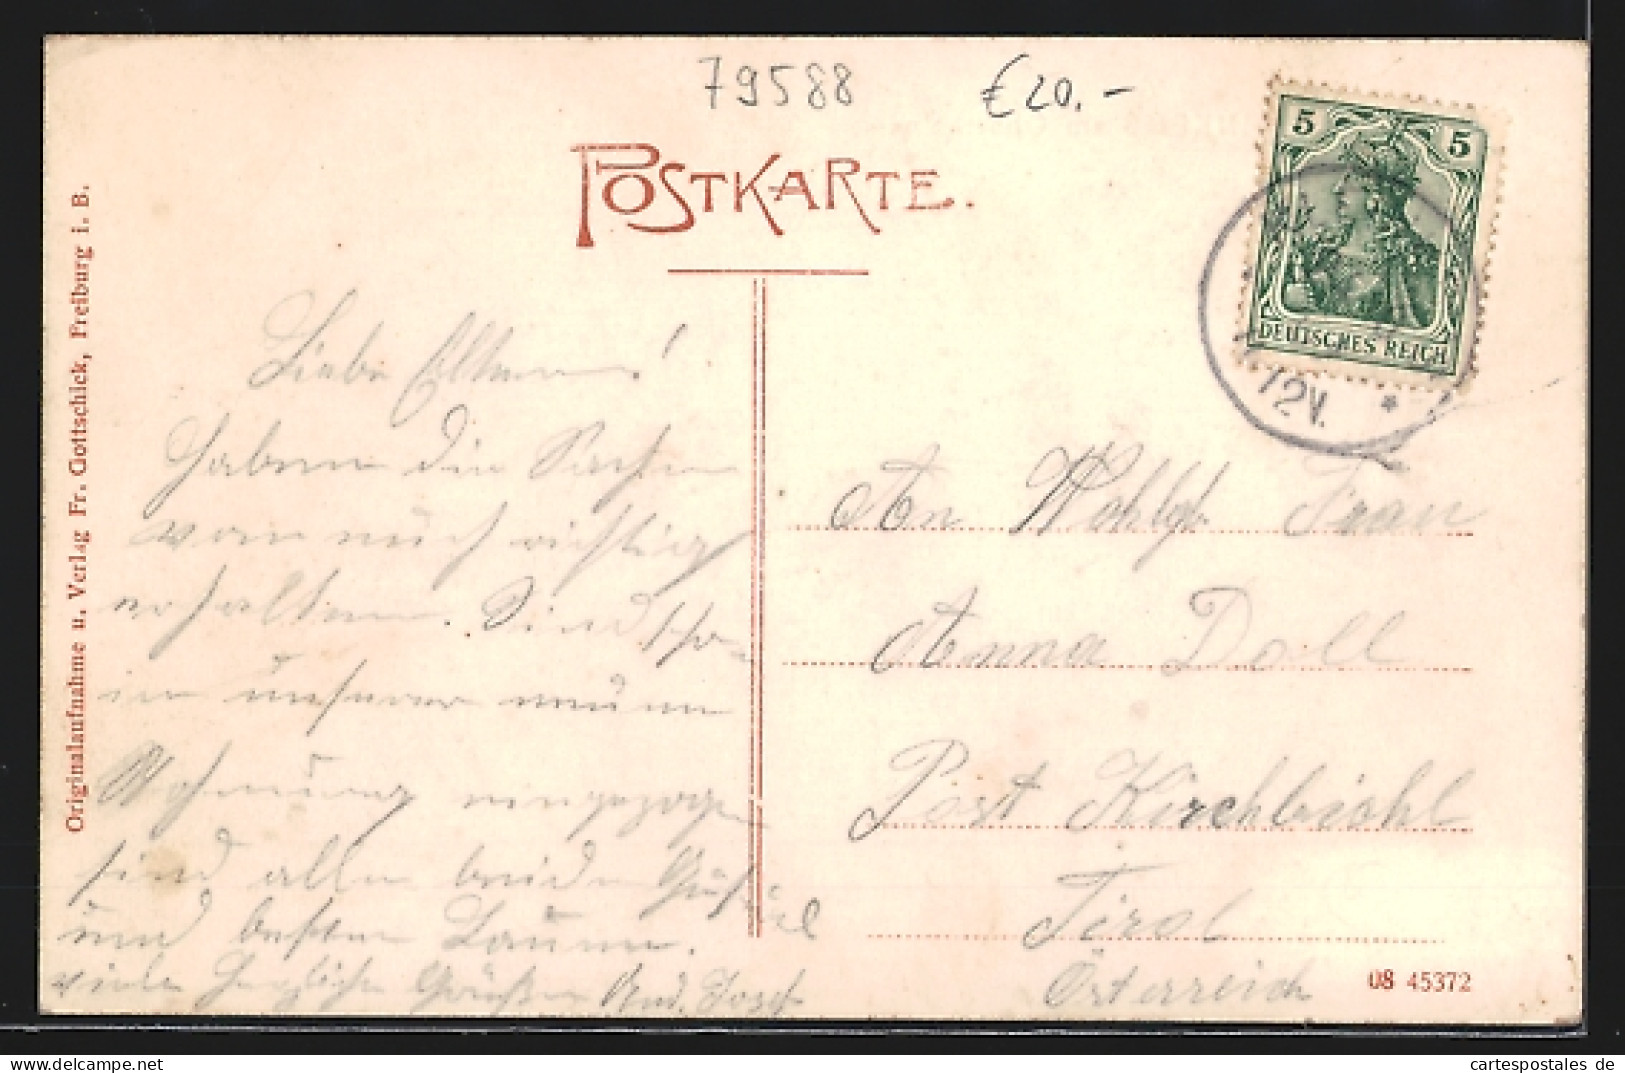 79588
€ 20.-
POSTKARTE.
5 5
DEUTSCHES REICH
12V. *
Originalaufnahme u. Verlag Fr. Gottschick, Freiburg i. B.
Liebe Eltern!
haben die Sachen
von euch richtig
erhalten. Sind scho
in unserer neuen
Wohnung eingezogen
sind alle beide
und besten Laune.
viele herzliche Grüße And. Josef
An Wohlgb. Frau
Anna Doll
Post Kirchbichl
Tirol
Österreich
08 45372
cartespostales de